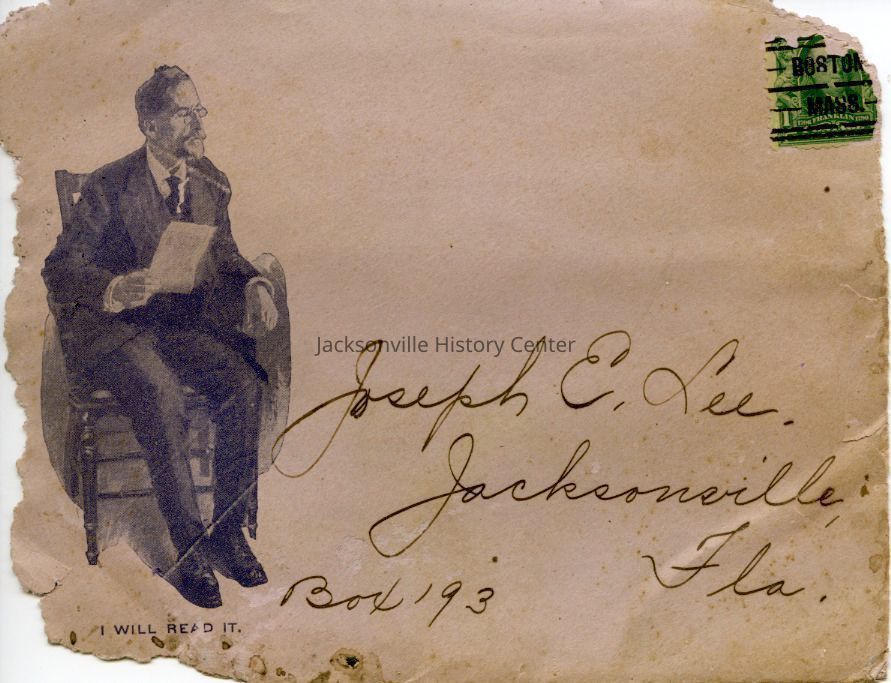 BOSTON
MASS.
1
FRANKLIN
Jacksonville History Center
Joseph E. Lee.
Jacksonville,
Fla.
Box 193
I WILL READ IT.